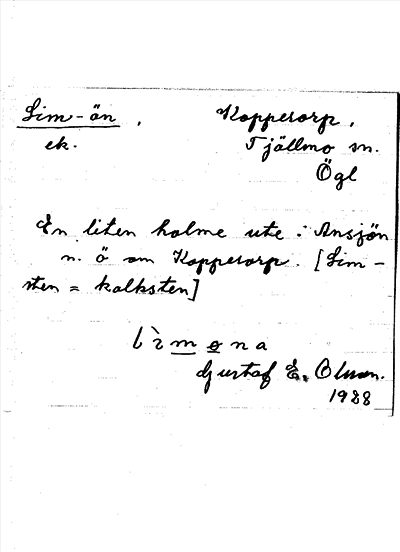 Lim-ön, Kopperorp,
ek. Tjällmo sn.
Ögl
En liten holme ute i Ansjön
n. ö om Kopperorp. [Lim-
sten = kalksten]
lìmona
Gustaf E. Olsson.
1928